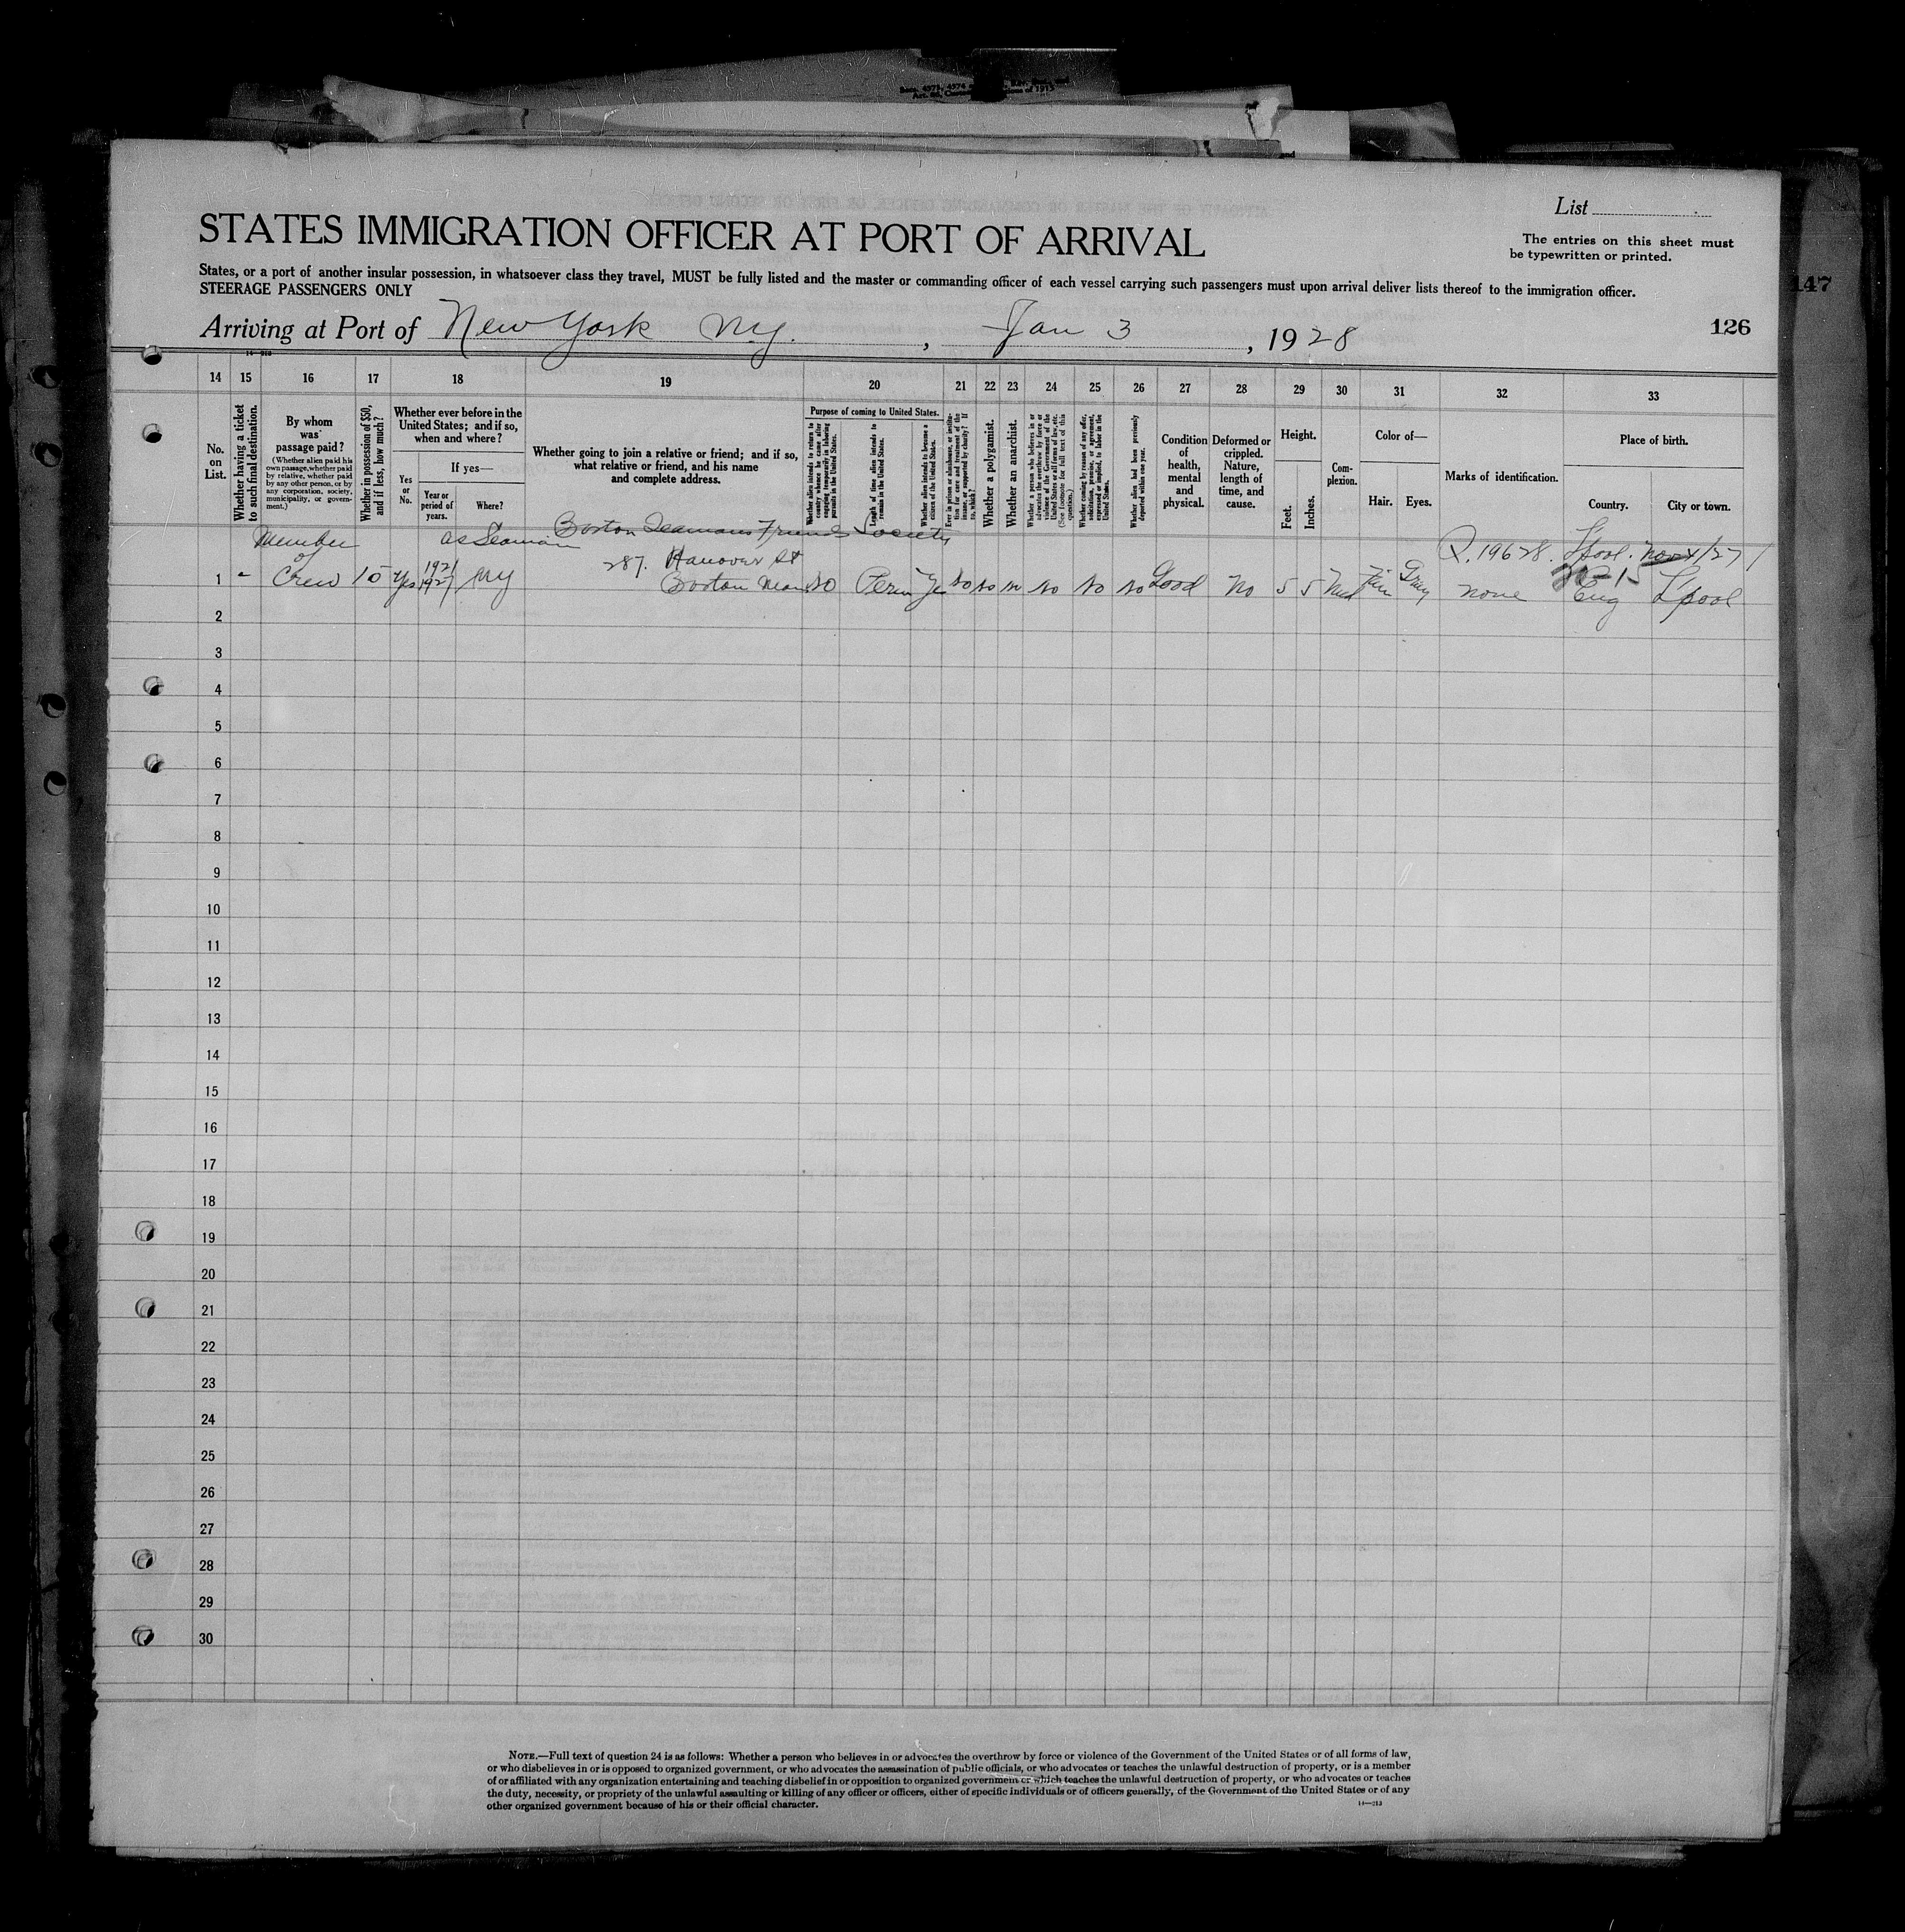 Secs. 4571, 4574
Act. 86, of 1913
List
STATES IMMIGRATION OFFICER AT PORT OF ARRIVAL
The entries on this sheet must
be typewritten or printed.
States, or a port of another insular possession, in whatsoever class they travel, MUST be fully listed and the master or commanding officer of each vessel carrying such passengers must upon arrival deliver lists thereof to the immigration officer.
STEERAGE PASSENGERS ONLY
147
Arriving at Port of New York N.Y. , Jan 3 , 1928
126
14—213
14 15 16 17 18 19 20 21 22 23 24 25 26 27 28 29 30 31 32 33
No. on List.
Whether having a ticket to such final destination.
By whom was passage paid?
(Whether alien paid his own passage, whether paid by relative, whether paid by any other person, or by any corporation, society, municipality, or government.)
Whether in possession of $50, and if less, how much?
Whether ever before in the United States; and if so, when and where?
Yes or No.
If yes—
Year or period of years.
Where?
Whether going to join a relative or friend; and if so, what relative or friend, and his name and complete address.
Purpose of coming to United States.
Whether alien intends to return to country whence he came after engaging temporarily in laboring pursuits in the United States.
Length of time alien intends to remain in the United States.
Whether alien intends to become a citizen of the United States.
Ever in prison or almshouse, or institution for care and treatment of the insane, or supported by charity? If so, which?
Whether a polygamist.
Whether an anarchist.
Whether a person who believes in or advocates the overthrow by force or violence of the Government of the United States or all forms of law, etc. (See footnote for full text of this question.)
Whether coming by reason of any offer, solicitation, promise, or agreement, expressed or implied, to labor in the United States.
Whether alien had been previously deported within one year.
Condition of health, mental and physical.
Deformed or crippled. Nature, length of time, and cause.
Height.
Feet.
Inches.
Complexion.
Color of—
Hair.
Eyes.
Marks of identification.
Place of birth.
Country.
City or town.
Member as Seaman Boston Seamans Friends Society Q. 19628. L'pool. Nov /27
of 1921 287. Hanover St
1 - Crew 10 Yes 1927 NY Boston Mass No Perm Yes No No No No No No Good No 5 5 Med Fair Gray none Eng L'pool
2
3
4
5
6
7
8
9
10
11
12
13
14
15
16
17
18
19
20
21
22
23
24
25
26
27
28
29
30
NOTE.—Full text of question 24 is as follows: Whether a person who believes in or advocates the overthrow by force or violence of the Government of the United States or of all forms of law,
or who disbelieves in or is opposed to organized government, or who advocates the assassination of public officials, or who advocates or teaches the unlawful destruction of property, or is a member
of or affiliated with any organization entertaining and teaching disbelief in or opposition to organized government or which teaches the unlawful destruction of property, or who advocates or teaches
the duty, necessity, or propriety of the unlawful assaulting or killing of any officer or officers, either of specific individuals or of officers generally, of the Government of the United States or of any
other organized government because of his or their official character.
14—213